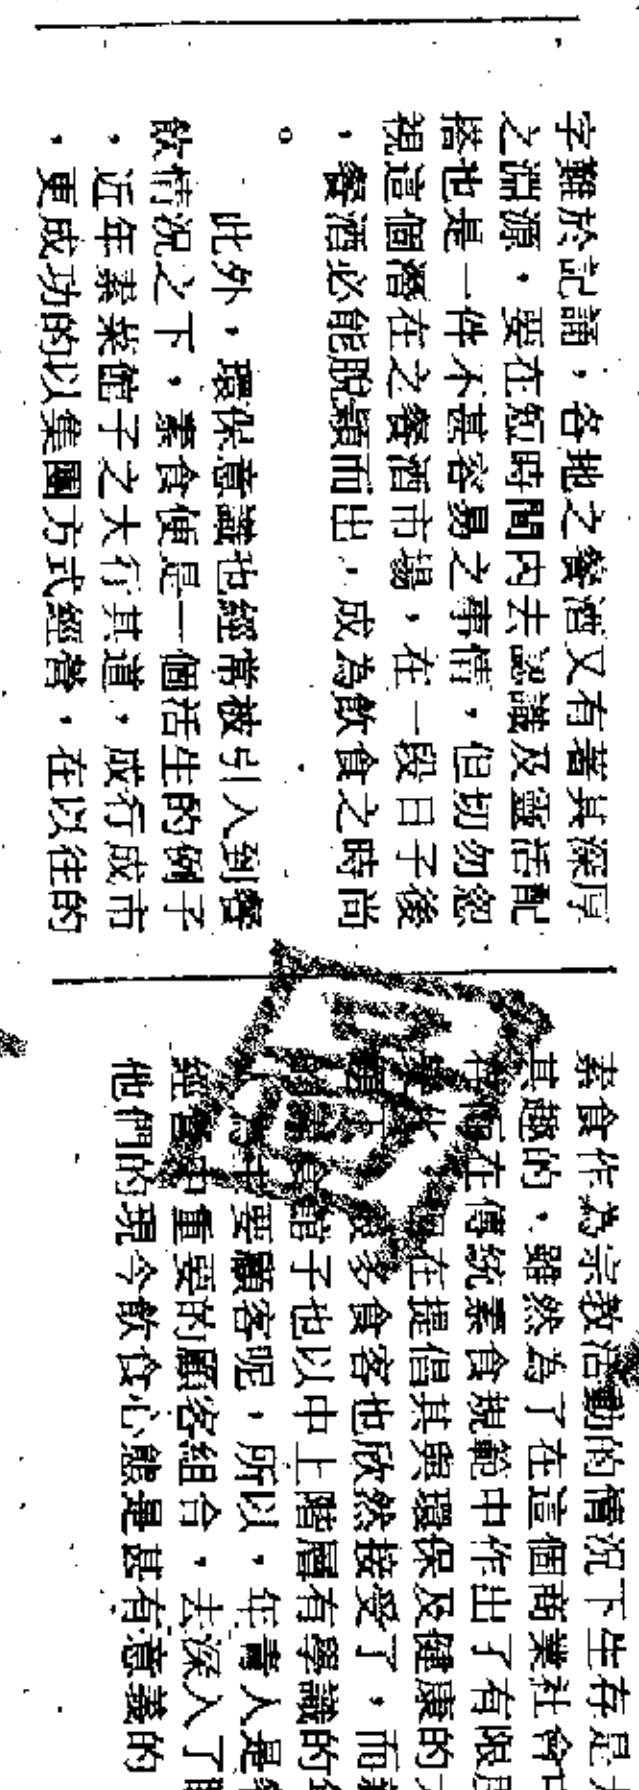 字難於記誦，各地之餐酒又有著其深厚
之淵源，要在短時間內去認識及靈活配
搭也是一件不甚容易之事情，但切勿忽
視這個潛在之餐酒市場，在一段日子後
，餐酒必能脫穎而出，成為飲食之時尚
。
此外，環保意識也經常被引入到餐
飲情況之下，素食便是一個活生的例子
，近年素菜館子之大行其道，成行成市
，更成功的以集團方式經營，在以往的
素食作為宗教活動的情況下生存是
其趣的，雖然為了在這個商業社會
在傳統素食規範中作出了有限
在提倡其與環保及健康的
多食客也欣然接受了，而
館子也以中上階層有學識的
主要顧客呢，所以，年青人是
經營中重要的顧客組合，去深入了
他們的現今飲食心態是甚有意義的